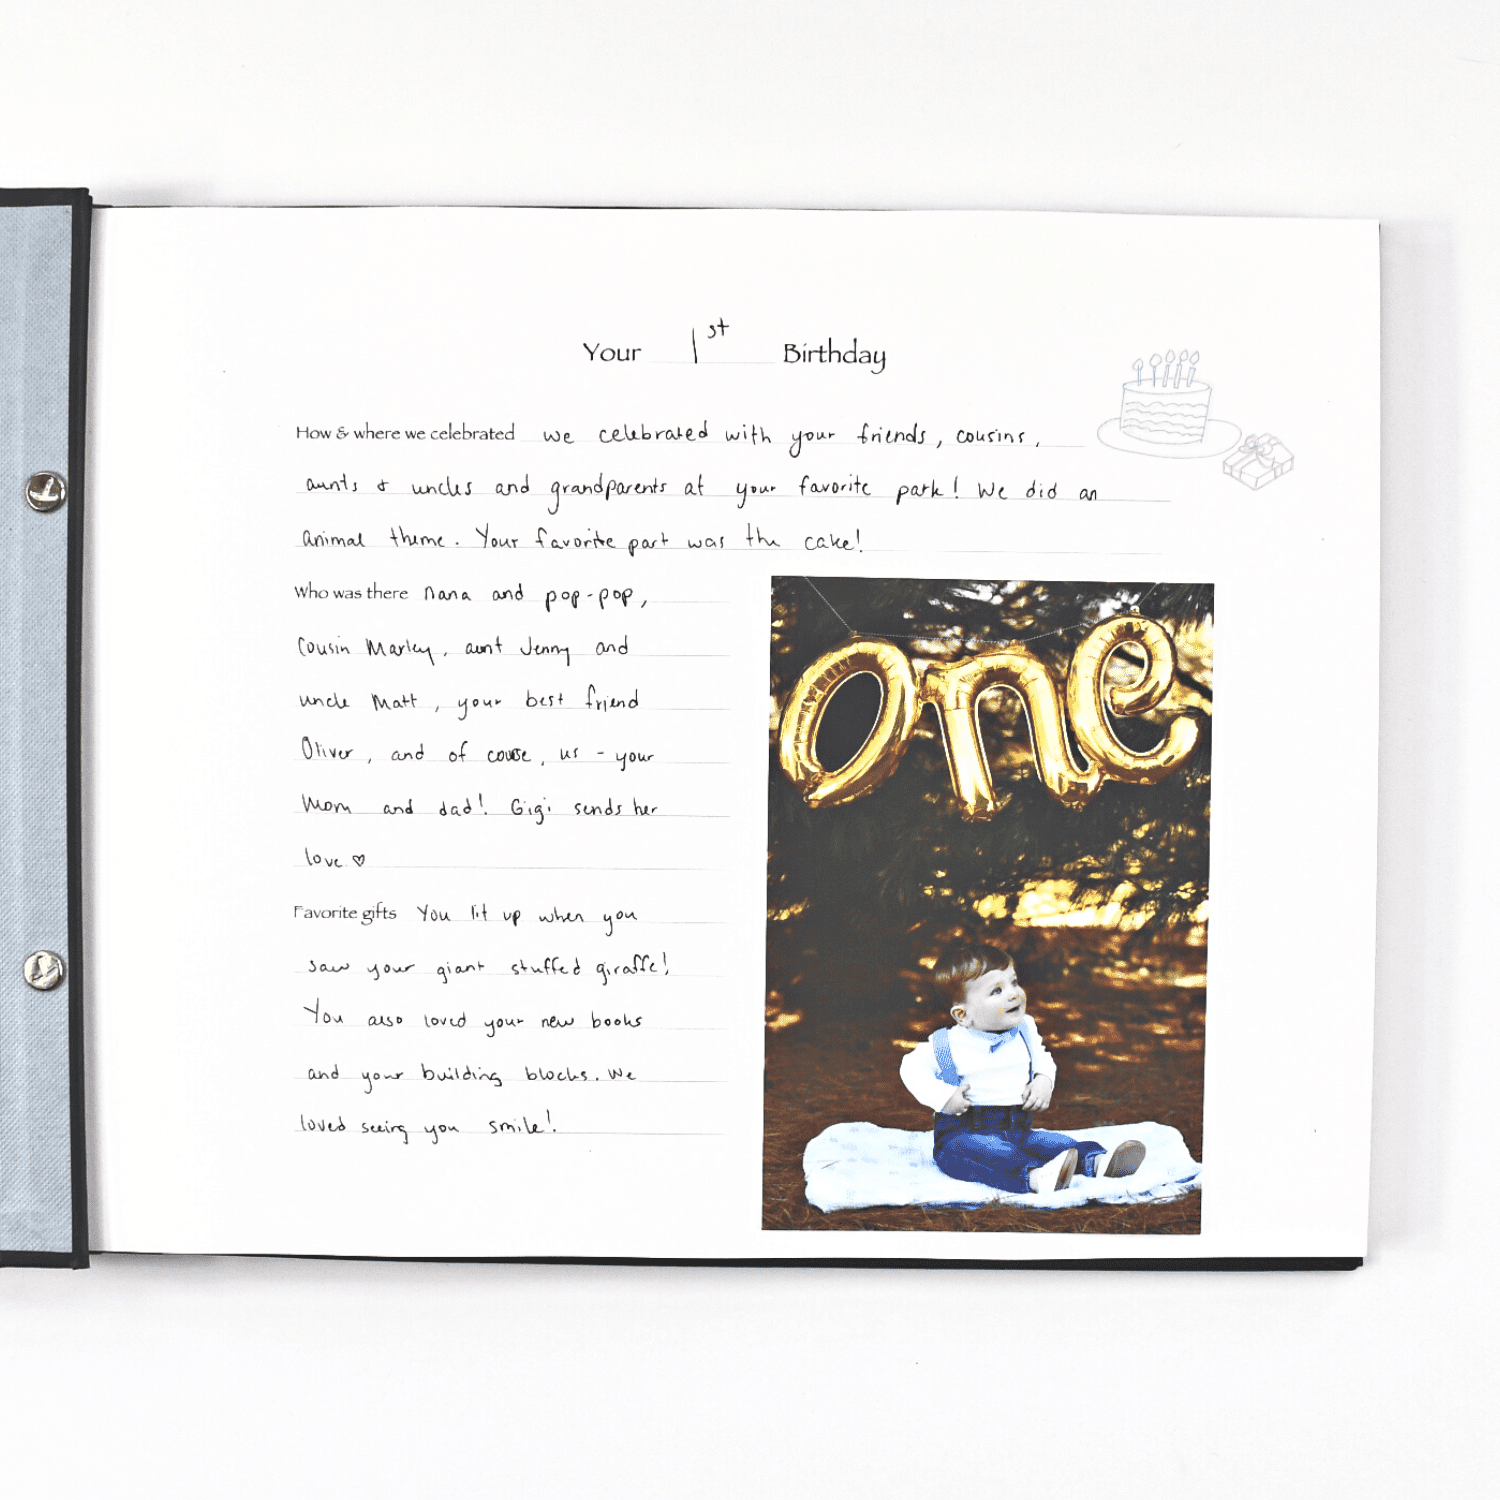 Your 1st Birthday
How & where we celebrated we celebrated with your friends, cousins,
aunts & uncles and grandparents at your favorite park! We did an
animal theme. Your favorite part was the cake!
Who was there nana and pop-pop,
cousin Marley, aunt Jenny and
uncle Matt, your best friend
Oliver, and of course, us - your
Mom and dad! Gigi sends her
love ♡
Favorite gifts You lit up when you
saw your giant stuffed giraffe!
You also loved your new books
and your building blocks. We
loved seeing you smile!
one